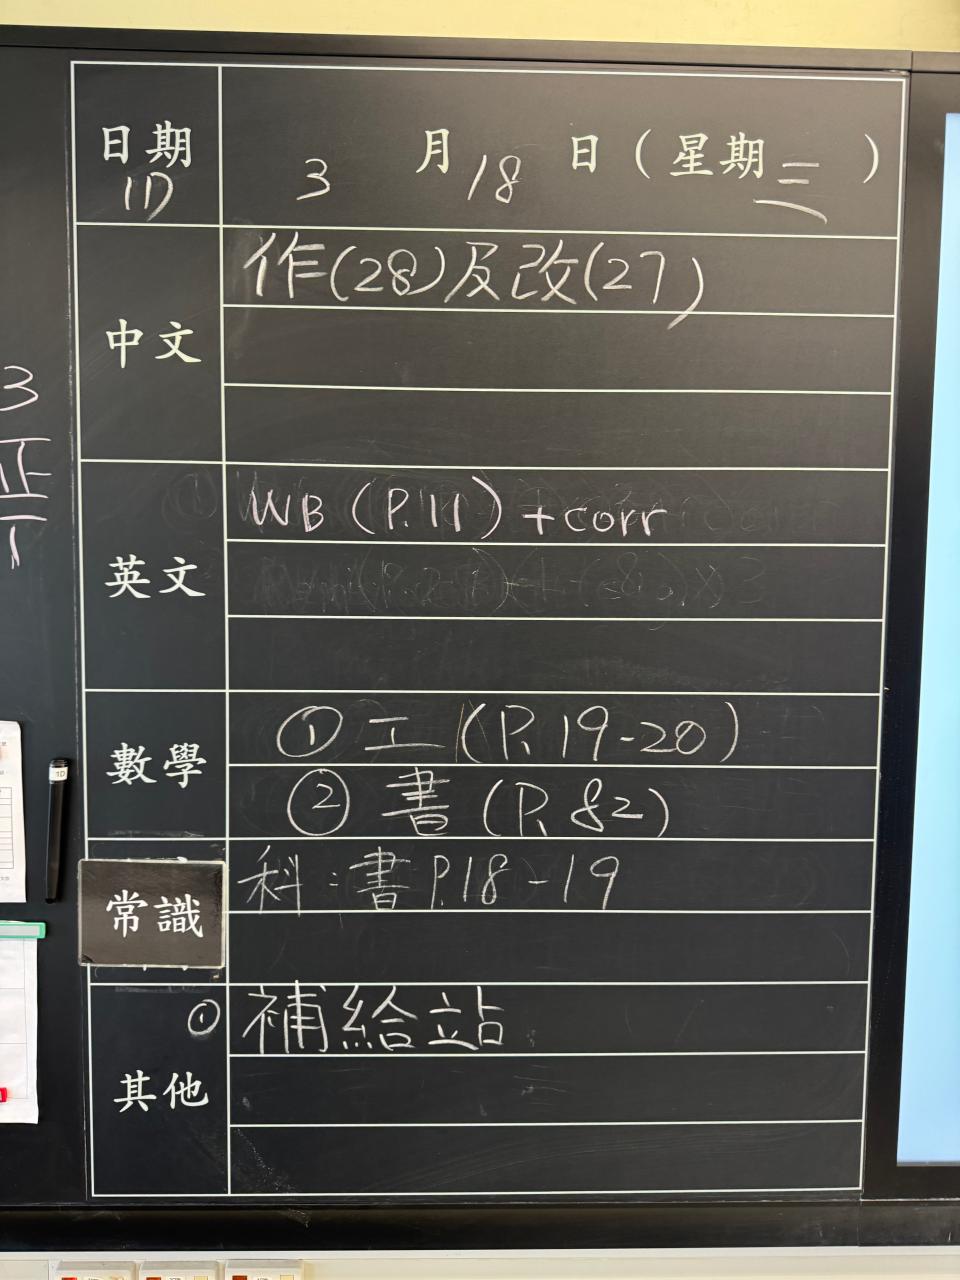 日期 3 月 18 日（星期三）
1D
中文 作(28)及改(27)
英文 WB (P.11) + corr
數學 ① 工 (P. 19-20)
② 書 (P. 82)
常識 科：書 P.18-19
其他 ① 補給站
3
正
1D